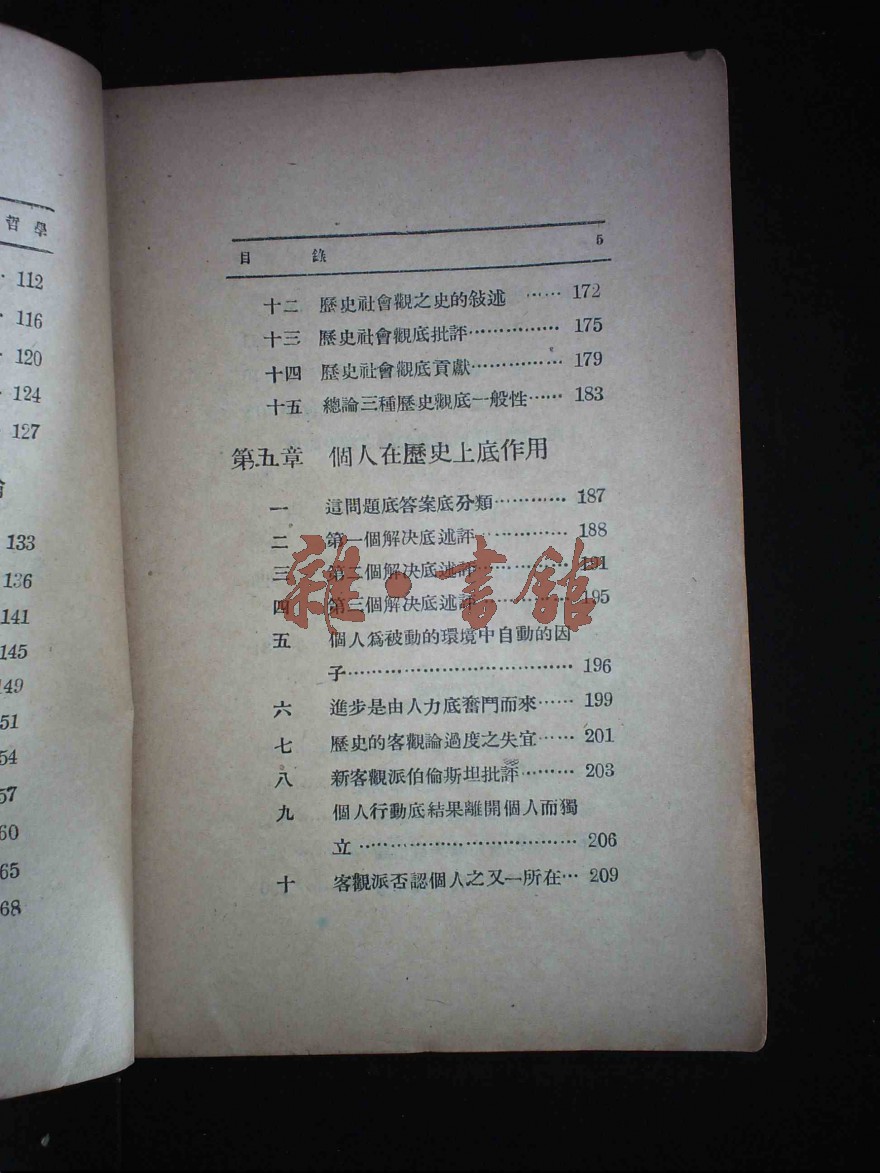 哲學
112
116
120
124
127
133
136
141
145
149
51
54
57
60
65
68
目 錄 5
十二 歷史社會觀之史的敍述 …… 172
十三 歷史社會觀底批評…………… 175
十四 歷史社會觀底貢獻…………… 179
十五 總論三種歷史觀底一般性…… 183
第五章 個人在歷史上底作用
一 這問題底答案底分類………… 187
二 第一個解決底述評………… 188
三 第二個解決底述評………… 191
四 第三個解決底述評………… 195
五 個人爲被動的環境中自動的因
子…………………………… 196
六 進步是由人力底奮鬥而來…… 199
七 歷史的客觀論過度之失宜…… 201
八 新客觀派伯倫斯坦批評……… 203
九 個人行動底結果離開個人而獨
立 ………………………… 206
十 客觀派否認個人之又一所在… 209
雜·書館